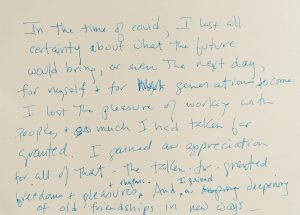 In the time of covid, I lost all
certainty about what the future
would bring, or even the next day,
for myself & for generations to come.
I lost the pleasure of working with
people, & so much I had taken for
granted. I gained an appreciation
for all of that - the taken-for-granted
freedoms & pleasures & rhythms. And, I gained a deepening
of old friendships in new ways -